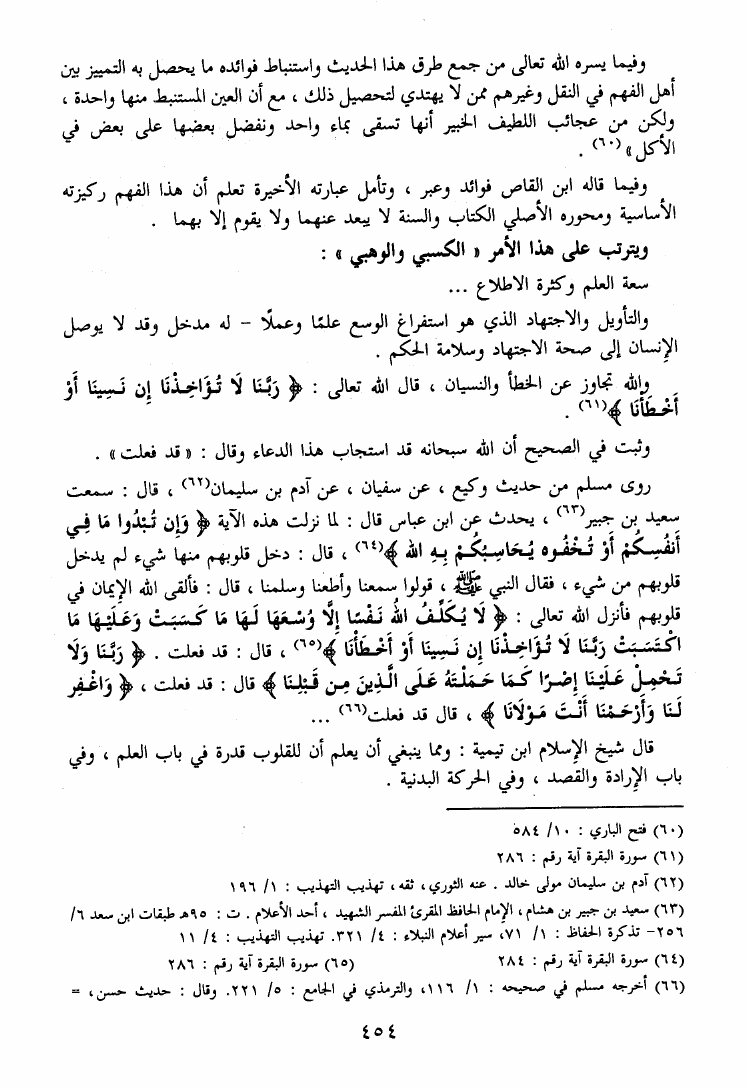 وفيما يسره الله تعالى من جمع طرق هذا الحديث واستنباط فوائده ما يحصل به التمييز بين
أهل الفهم في النقل وغيرهم ممن لا يهتدي لتحصيل ذلك ، مع أن العين المستنبط منها واحدة ،
ولكن من عجائب اللطيف الخبير أنها تسقى بماء واحد ونفضل بعضها على بعض في
الأكل »(٦٠) .
وفيما قاله ابن القاص فوائد وعبر ، وتأمل عبارته الأخيرة تعلم أن هذا الفهم ركيزته
الأساسية ومحوره الأصلي الكتاب والسنة لا يبعد عنهما ولا يقوم إلا بهما .
ويترتب على هذا الأمر « الكسبي والوهبي » :
سعة العلم وكثرة الاطلاع ...
والتأويل والاجتهاد الذي هو استفراغ الوسع علمًا وعملًا – له مدخل وقد لا يوصل
الإنسان إلى صحة الاجتهاد وسلامة الحكم .
والله تجاوز عن الخطأ والنسيان ، قال الله تعالى : ﴿ رَبَّنَا لَا تُؤَاخِذْنَا إِن نَسِينَا أَوْ
أَخْطَأْنَا ﴾(٦١) .
وثبت في الصحيح أن الله سبحانه قد استجاب هذا الدعاء وقال : « قد فعلت » .
روى مسلم من حديث وكيع ، عن سفيان ، عن آدم بن سليمان(٦٢) ، قال : سمعت
سعيد بن جبير(٦٣) ، يحدث عن ابن عباس قال : لما نزلت هذه الآية ﴿ وَإِن تُبْدُوا مَا فِي
أَنفُسِكُمْ أَوْ تُخْفُوه يُحَاسِبْكُمْ بِهِ الله ﴾(٦٤) ، قال : دخل قلوبهم منها شيء لم يدخل
قلوبهم من شيء ، فقال النبي ﷺ ، قولوا سمعنا وأطعنا وسلمنا ، قال : فألقى الله الإيمان في
قلوبهم فأنزل الله تعالى : ﴿ لَا يُكَلِّفُ اللهُ نَفْسًا إِلَّا وُسْعَهَا لَهَا مَا كَسَبَتْ وَعَلَيْهَا مَا
اكْتَسَبَتْ رَبَّنَا لَا تُؤَاخِذْنَا إِن نَسِينَا أَوْ أَخْطَأْنَا ﴾(٦٥) ، قال : قد فعلت . ﴿ رَبَّنَا وَلَا
تَحْمِلْ عَلَيْنَا إِصْرًا كَمَا حَمَلْتَهُ عَلَى الَّذِينَ مِن قَبْلِنَا ﴾ قال : قد فعلت ، ﴿ وَاغْفِر
لَنَا وَأَرْحَمْنَا أَنْتَ مَوْلَانَا ﴾ ، قال قد فعلت(٦٦) ...
قال شيخ الإسلام ابن تيمية : ومما ينبغي أن يعلم أن للقلوب قدرة في باب العلم ، وفي
باب الإرادة والقصد ، وفي الحركة البدنية .
(٦٠) فتح الباري : ١٠/ ٥٨٤
(٦١) سورة البقرة آية رقم : ٢٨٦
(٦٢) آدم بن سليمان مولى خالد . عنه الثوري، ثقه، تهذيب التهذيب : ١/ ١٩٦
(٦٣) سعيد بن جبير بن هشام، الإمام الحافظ المقرئ المفسر الشهيد ، أحد الأعلام . ت : ٩٥هـ طبقات ابن سعد ٦/
٢٥٦- تذكرة الحفاظ : ١/ ٧١، سير أعلام النبلاء : ٤/ ٣٢١. تهذيب التهذيب : ٤/ ١١
(٦٤) سورة البقرة آية رقم : ٢٨٤ (٦٥) سورة البقرة آية رقم : ٢٨٦
(٦٦) أخرجه مسلم في صحيحه : ١/ ١١٦، والترمذي في الجامع : ٥/ ٢٢١. وقال : حديث حسن، =
٤٥٤